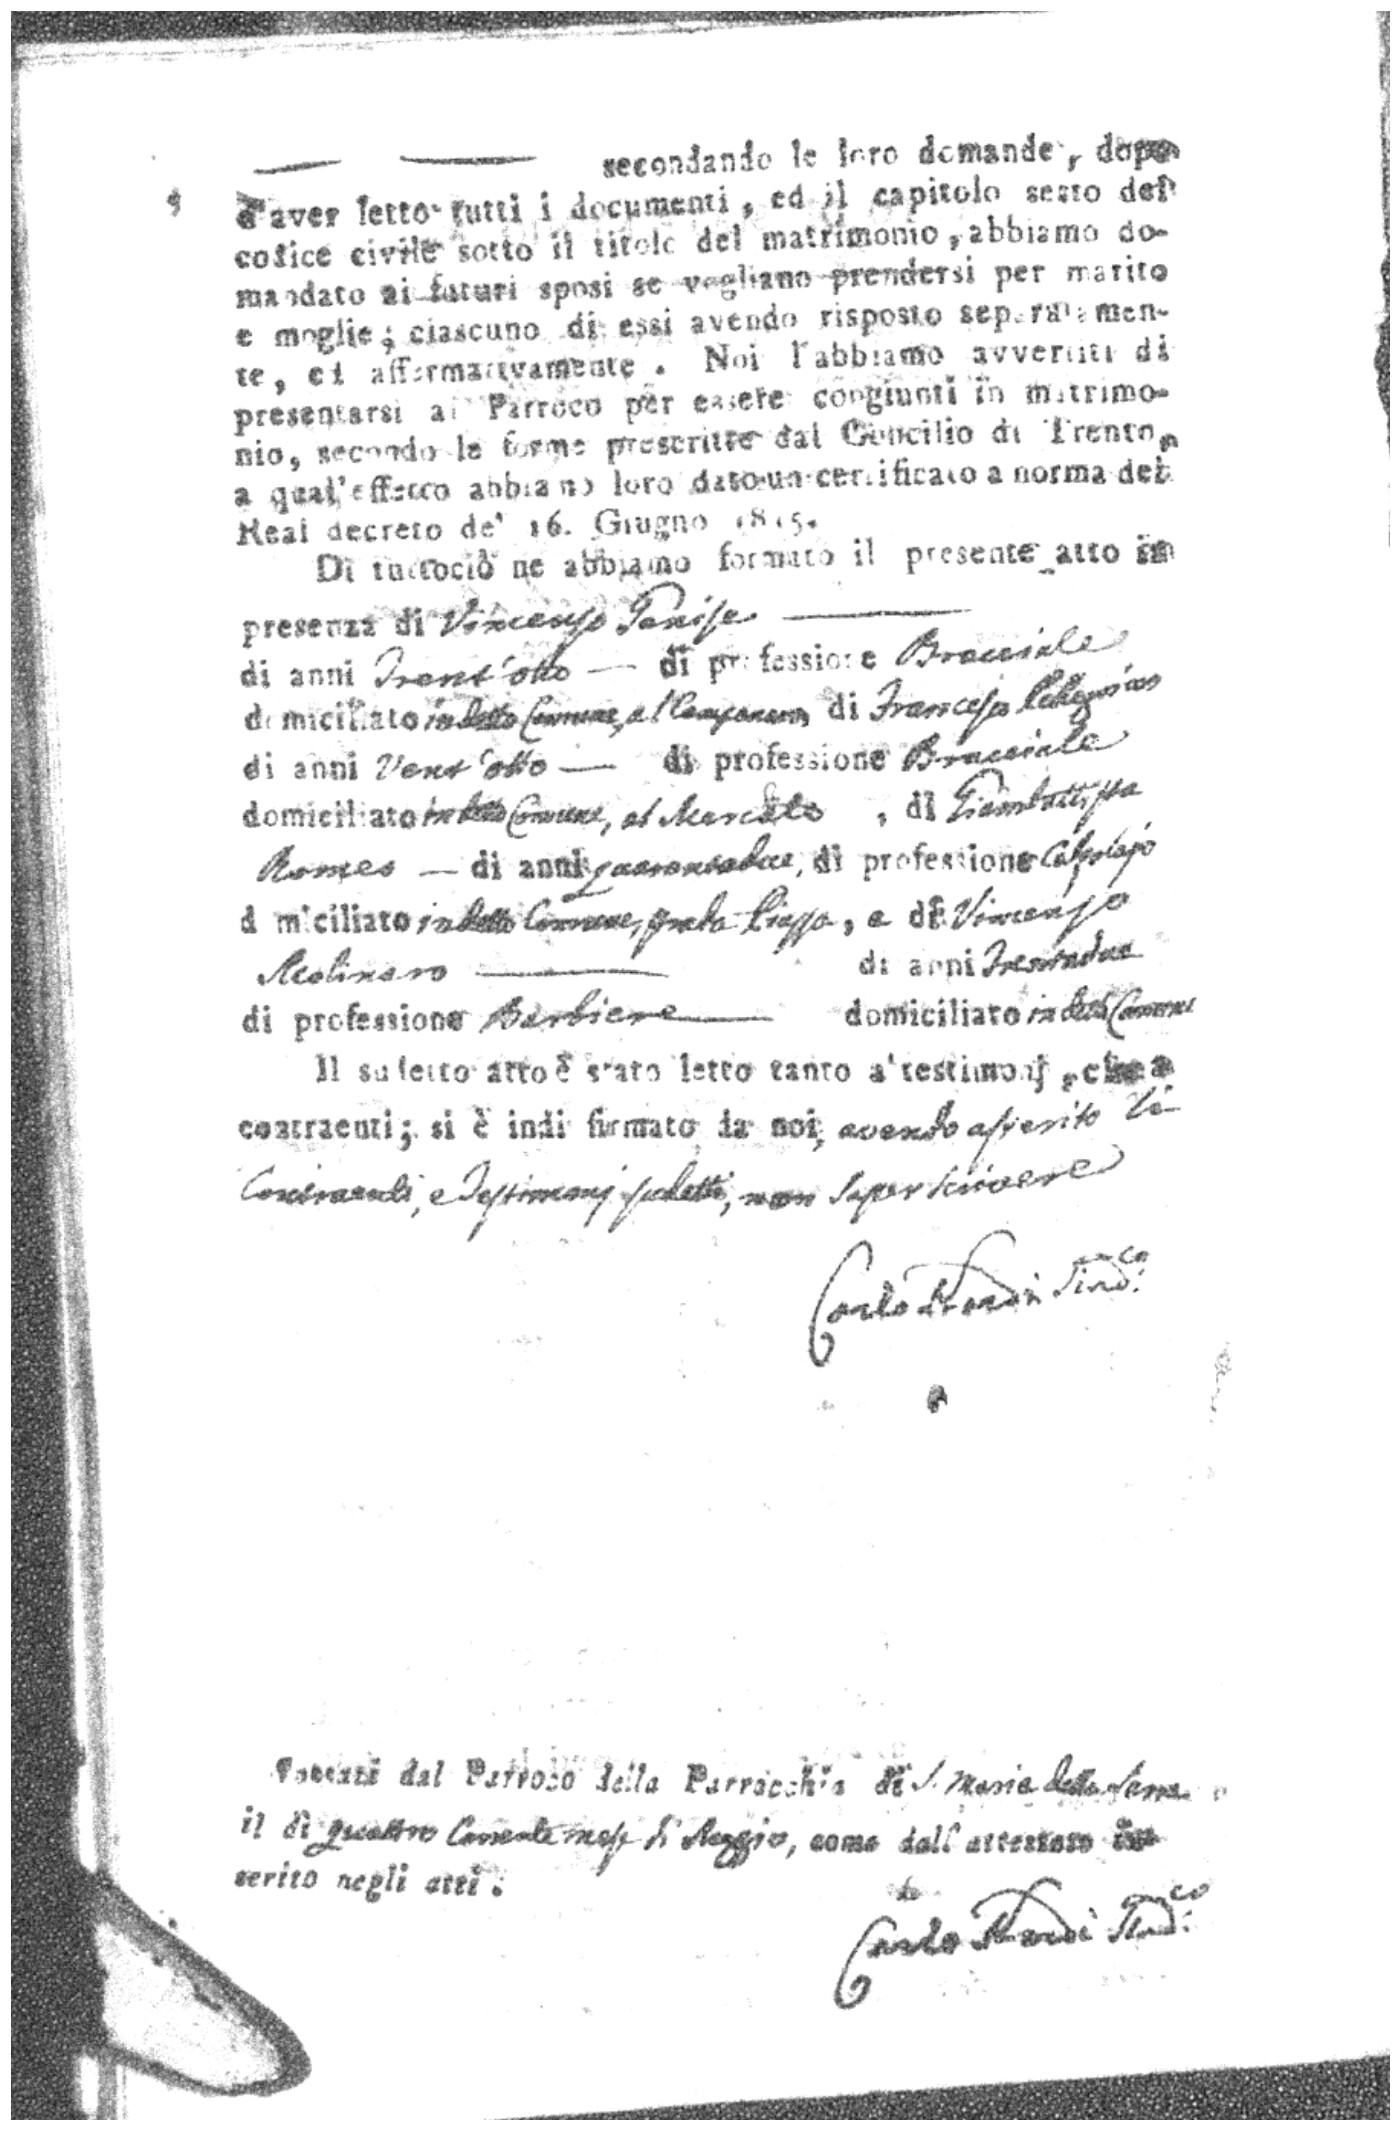 secondando le loro domande, dopo
d'aver letto tutti i documenti, ed il capitolo sesto del
codice civile sotto il titolo del matrimonio, abbiamo do-
mandato ai futuri sposi se vogliano prendersi per marito
e moglie; ciascuno di essi avendo risposto separatamen-
te, ed affermativamente. Noi l'abbiamo avvertiti di
presentarsi al Parroco per essere congiunti in matrimo-
nio, secondo le forme prescritte dal Concilio di Trento,
a qual'effetto abbiamo loro dato un certificato a norma del
Real decreto de' 16. Giugno 1815.
Di tuttociò ne abbiamo formato il presente atto in
presenza di Vincenzo
di anni Trent'otto — di professione Bracciale
domiciliato in detto Comune, al di Francesco
di anni Vent'otto — di professione Bracciale
domiciliato in detto Comune, al Mercato, di Giambattista
Romeo — di anni quarantadue, di professione Calzolajo
domiciliato in detto Comune, Piazza, e di Vincenzo
Molinaro di anni Trentadue
di professione Barbiere domiciliato in detto Comune
Il sudetto atto è stato letto tanto a' testimonj, che a
contraenti; si è indi firmato da noi, avendo asserito li
Contraenti, e Testimonj sudetti, non saper scrivere
Carlo Sind.co
Parroco della Parrocchia di S. Maria della
il di quattro Corrente mese di Maggio, come dall'attestato in-
serito negli atti.
Carlo Sind.co